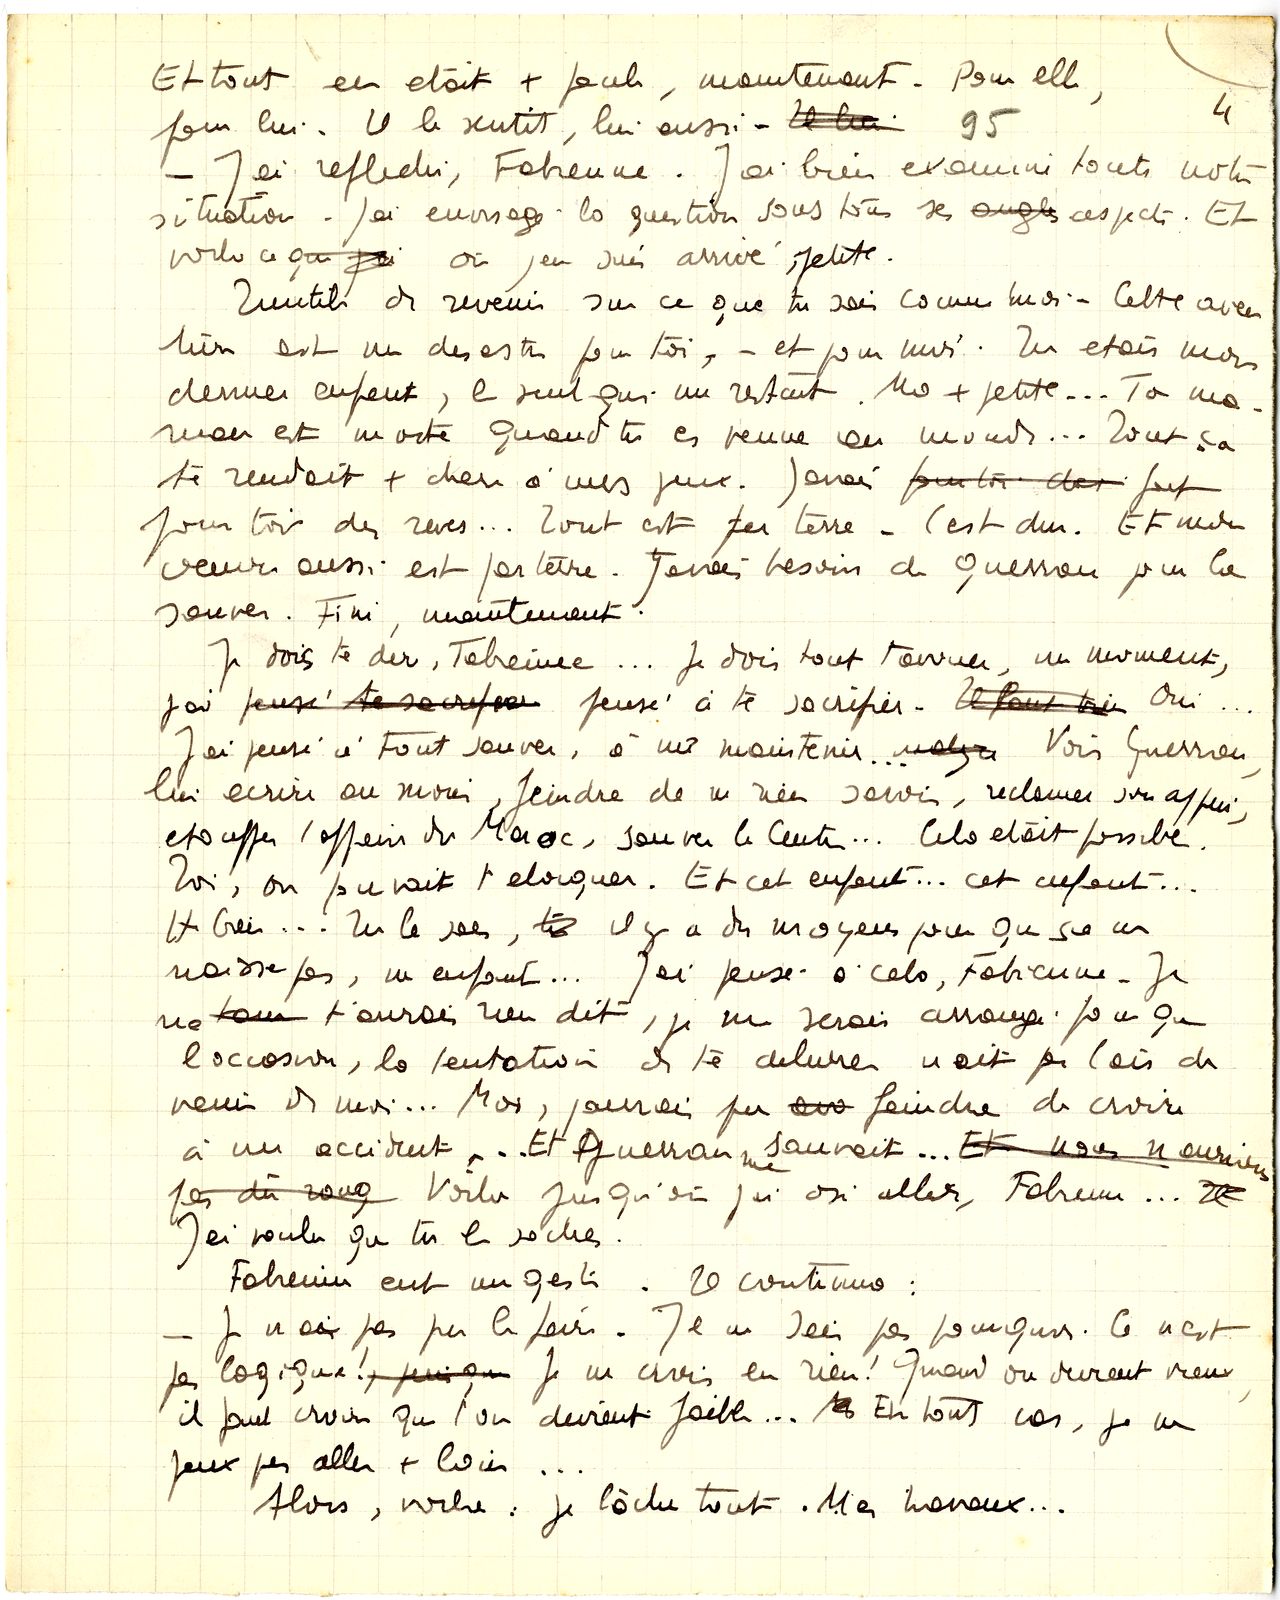 Et tout en était + facile, maintenant. Pour elle,
pour lui. Il le sentit, lui aussi. Il lui 95 4
— J'ai réfléchi, Fabienne. J'ai bien examiné toute notre
situation. J'ai envisagé la question sous tous ses angles aspects. Et
voilà ce que j'ai où j'en suis arrivé, petite.
Inutile de revenir sur ce que tu sais comme moi. Cette aven
ture est un désastre pour toi, – et pour moi. Tu étais mon
dernier enfant, le seul qui me restait. Ma + petite... Ta ma-
man est morte quand tu es venue au monde... Tout ça
te rendait + chère à mes yeux. J'avais pour toi des fait
pour toi des rêves... Tout est par terre. C'est dur. Et mon
oeuvre aussi est par terre. J'avais besoin de Guerran pour la
sauver. Fini, maintenant.
Je dois te dire, Fabienne ... Je dois tout t'avouer, un moment,
j'ai pensé te sacrifier pensé à te sacrifier. Il faut bien Oui ...
J'ai pensé à tout sauver, à me maintenir... malgré Voir Guerran,
lui écrire au moins, feindre de ne rien savoir, réclamer son appui,
étouffer l'affaire du Maroc, sauver le Centre... Cela était possible.
Toi, on pouvait t'éloigner. Et cet enfant... cet enfant...
Eh bien... Tu le sais, il y a des moyens pour que ça ne
naisse pas, un enfant... J'ai pensé à cela, Fabienne. Je
ne t'aurais rien dit, je me serais arrangé pour que
l'occasion, la tentation de te délivrer n'ait pas l'air de
venir de moi... Moi, j'aurais pu feindre de croire
à un accident ... Et Guerran me sauvait ... Et nous n'aurions
pas dû Voilà jusqu'où j'ai osé aller, Fabienne ...
J'ai voulu que tu le saches.
Fabienne eut un geste. Il continua :
— Je n'ai pas pu le faire. Je ne sais pas pourquoi. Ce n'est
pas logique!, puisque Je ne crois en rien! Quand on devient vieux,
il faut croire que l'on devient faible... En tout cas, je ne
peux pas aller + loin ...
Alors, voilà : je lâche tout. Mes travaux...